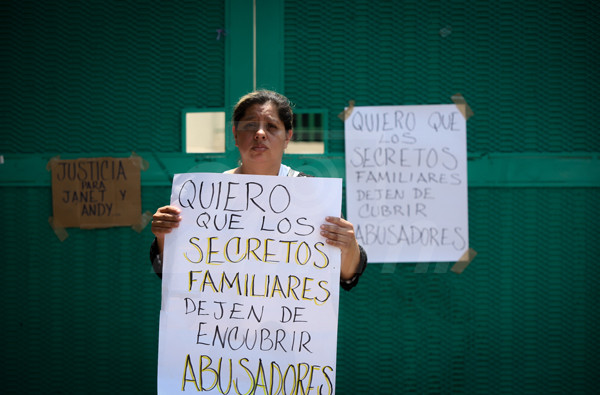 JUSTICIA
PARA
JANET Y
ANDY
QUIERO
QUE LOS
SECRETOS
FAMILIARES
DEJEN DE
ENCUBRIR
ABUSADORES
QUIERO QUE
LOS
SECRETOS
FAMILIARES
DEJEN DE
CUBRIR
ABUSADORES